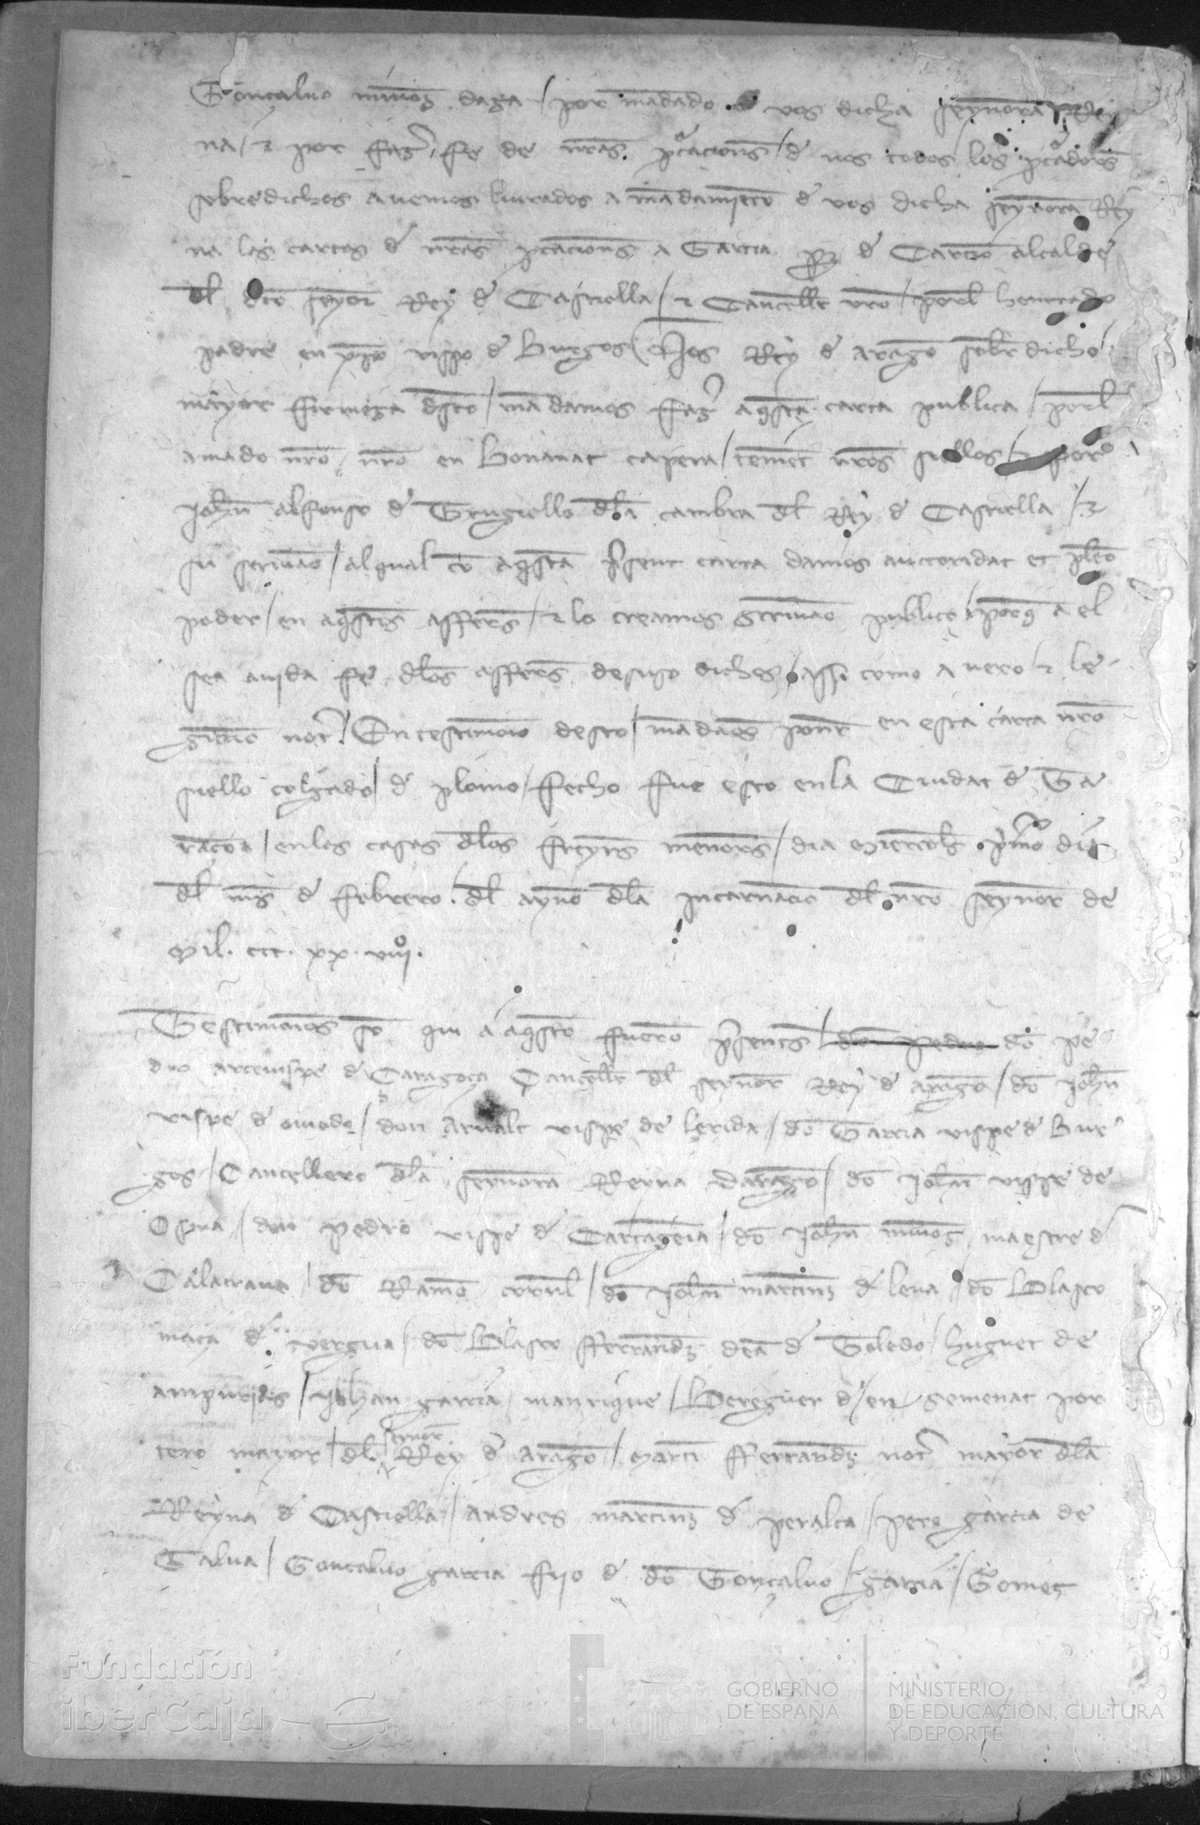 Gonçaluo munoz daga / por mādado d vos dicha seynora Rey
na / ⁊ por faz fe de nras pcacions / d nos todos los pcadors
sobredichos auemos liurados a mādamiēto d vos dicha seynora Rey
na las cartas d nras pcacions a Garcia Pz d alcalde
dl dco seyor Rey d Castiella / ⁊ Cancellr vro / porl honrrado
padre en xpo vispo d Burgos Nos Rey d aragō sobr dicho
mayor firmeza dsto / mādamos faz aqsta carta publica / porl
amado nro en Bonanat çapera / tenient nros siellos ⁊ por
Johan alfonso d Trugiello dla cambra dl Rey d Castiella / ⁊
su scriuano / al qual cō aqsta psent carta damos auctoridat et pleo
poder / en aqstes affers / ⁊ lo creamos scriuano publico / porq a el
sea auida fe dlos affers desuso diches / assi como a uero ⁊ le
gitimo not. En testimonio desto / mādamos poner en esta carta nro
siello colgado / d plomo / fecho fue esto en la Ciudat d Ta
raçona / en las casas dlos freyres menors / dia miercols pmo dia
dl mes d febrero dl ayno dla incarnacio dl nro seynor de
Mil. ccc. xx. viiiº.
Testimonios sō qui a aqsto fueron psents / don Pedro dō pe
dro arceuispe d Caragoça Cancellr dl seynor Rey d aragō / dō Johan
vispe d ouiedo / don Arnalt vispe de lerida / dō Garcia vispe d Bur
gos / Cancellero dla seynora Reyna daragō / dō Johan vispe de
Osma / don Pedro vispe d Cartagenia / dō Johan munoz maestre d
Calatraua / dō Ramō cornel / dō Johan martinz d leua / dō Blasco
maça d vergua / dō Blasco fferrandz deā d Toledo / huguet de
ampurias / Johan garcia manrique / Bereguer d / en semenat por
tero mayor / dl seynor Rey d aragō / marti fferrandz not mayor dla
Reyna d Castiella / andres martinz d peralta / pero garcia de
Talua / Gonçaluo garcia fijo d dō Gonçaluo garcia / Gomez
Fundación
iberCaja
GOBIERNO
DE ESPAÑA
MINISTERIO
DE EDUCACIÓN, CULTURA
Y DEPORTE